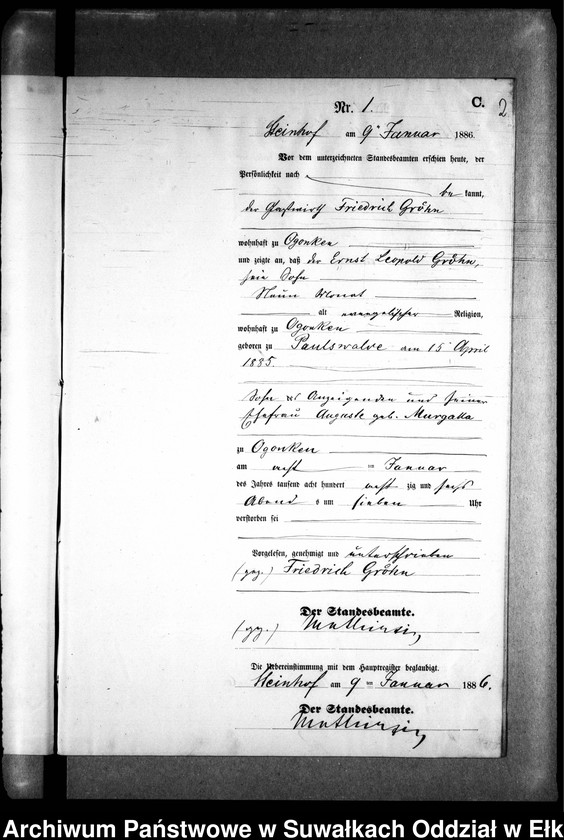 C.
2
Nr. 1.
Steinhof am 9ten Januar 1886.
Vor dem unterzeichneten Standesbeamten erschien heute, der
Persönlichkeit nach
be kannt,
der Gastwirth Friedrich Gröhn
wohnhaft zu Ogonken
und zeigte an, daß der Ernst Leopold Gröhn,
sein Sohn
Neun Monat
alt evangelischer Religion,
wohnhaft zu Ogonken
geboren zu Paulswalde am 15 April
1885.
Sohn des Anzeigenden und seiner
Ehefrau Auguste geb. Murgalla
zu Ogonken
am acht ten Januar
des Jahres tausend acht hundert acht zig und sechs
Abend s um sieben Uhr
verstorben sei
Vorgelesen, genehmigt und unterschrieben
(gez.) Friedrich Gröhn
Der Standesbeamte.
(gez.)
Die Uebereinstimmung mit dem Hauptregister beglaubigt.
Steinhof am 9 ten Januar 1886.
Der Standesbeamte.
Archiwum Państwowe w Suwałkach Oddział w Ełk